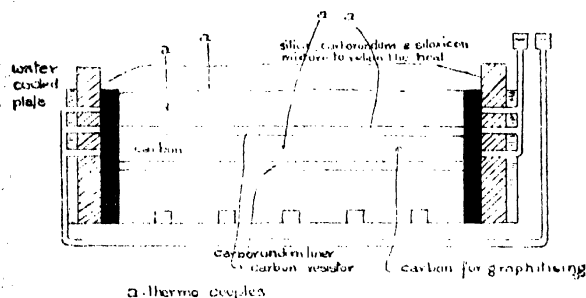 a a
a a
silica, carborundum & siloxicon
mixture to retain the heat
water
cooled
plate
carbon
carborundum liner
carbon resistor
carbon for graphitising
a - thermo couples